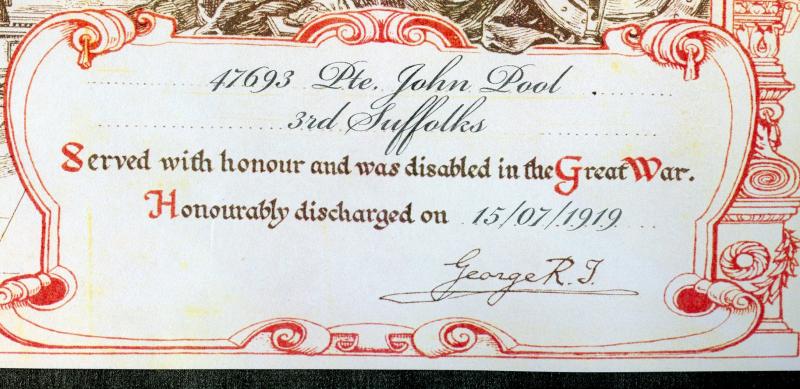 47693 Pte. John Pool
3rd Suffolks
Served with honour and was disabled in the Great War.
Honourably discharged on 15/07/1919
George R. I.